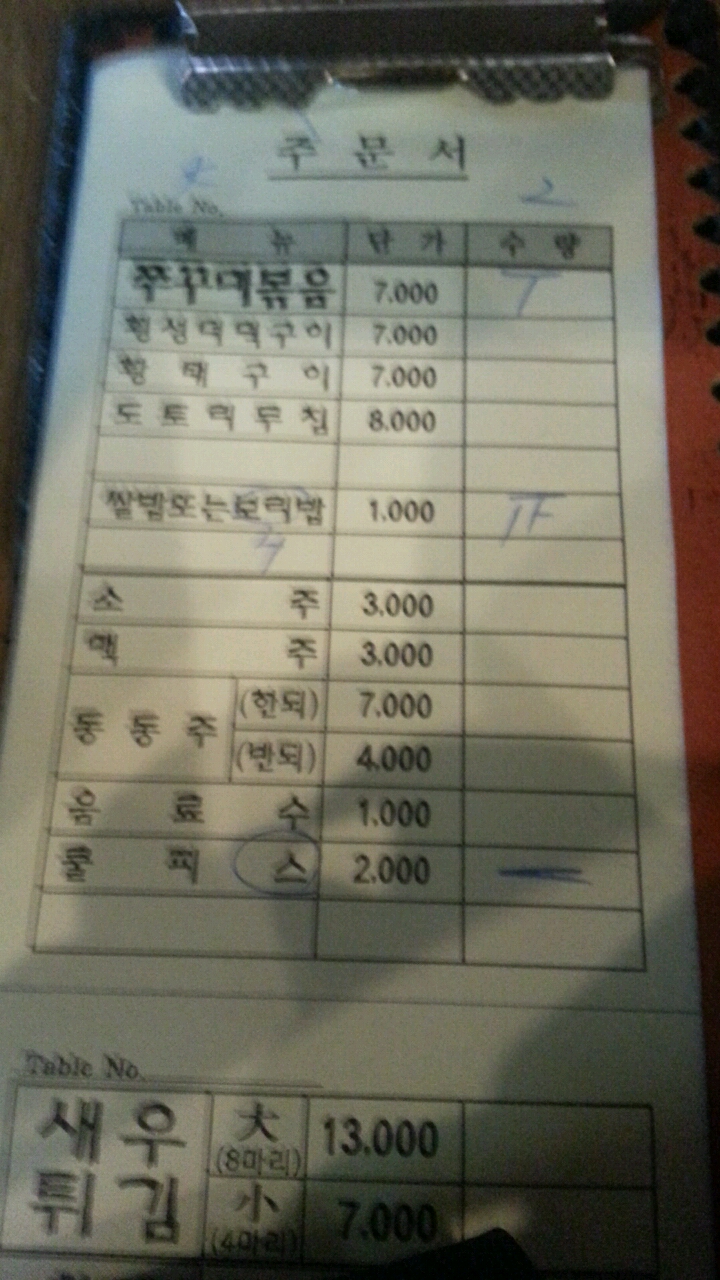 주 문 서
Table No. 2
메 뉴 단 가 수 량
쭈꾸미볶음 7.000 T
황생더덕구이 7.000
황 태 구 이 7.000
도토리무침 8.000
쌀밥또는보리밥 1.000
소 주 3.000
맥 주 3.000
동 동 주 (한되) 7.000
(반되) 4.000
음 료 수 1.000
쿨 피 스 2.000 一
Table No.
새우튀김 大 (8마리) 13.000
小 (4마리) 7.000